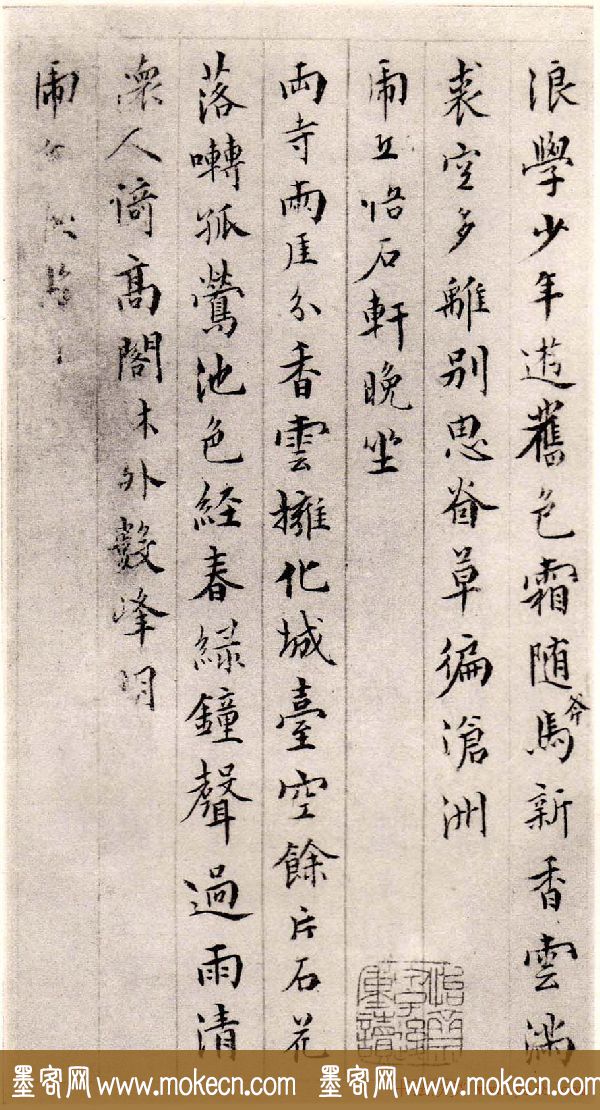 浪學少年遊舊色霜随馬新香雲滿
弅
裘空多離別思眷草徧滄洲
虎丘悟石軒晚坐
兩寺兩厓分香雲擁化城臺空餘片石花
落囀孤鶯池色經春緑鐘聲過雨清
懷人倚高閣木外數峰明
虎
墨客网 www.mokecn.com 墨客网 www.mokecn.com